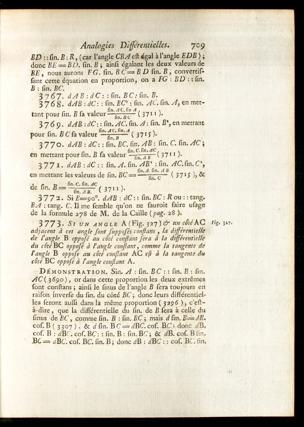 Analogies Différentielles. 709
BD :: sin. B : R, (car l'angle CBA est égal à l'angle EDB);
donc BE = BD. sin. B ; ainsi égalant les deux valeurs de
BE, nous aurons FG. sin. BC = BD sin. B, convertis-
sant cette équation en proportion, on a FG : BD :: sin.
B : sin. BC.
3767. dAB : dC :: sin. BC : sin. B.
3768. dAB : dC :: sin. BC² : sin. AC. sin. A, en met-
tant pour sin. B sa valeur sin. AC. sin. A / sin. BC (3711).
3769. dAB : dC :: sin. AC. sin. A : sin. B², en mettant
pour sin. BC sa valeur sin. AC. sin. A / sin. B (3715).
3770. dAB : dC :: sin. BC. sin. AB : sin. C. sin. AC ;
en mettant pour sin. B sa valeur sin. C. sin. AC / sin. AB (3711).
3771. dAB : dC :: sin. A. sin. AB² : sin. AC. sin. C²,
en mettant les valeurs de sin. BC = sin. A. sin. AB / sin. C (3715), &
de sin. B = sin. C. sin. AC / sin. AB (3711).
3772. Si B = 90°. dAB : dC :: sin. BC : R ou :: tang.
BA : tang. C. Il me semble qu'on ne sauroit faire usage
de la formule 278 de M. de la Caille (pag. 28).
3773. SI UN ANGLE A (Fig. 327) & un côté AC Fig. 327.
adjacent à cet angle sont supposés constans, la différentielle
de l'angle B opposé au côté constant sera à la différentielle
du côté BC opposé à l'angle constant, comme la tangente de
l'angle B opposé au côté constant AC est à la tangente du
côté BC opposé à l'angle constant A.
DÉMONSTRATION. Sin. A : sin. BC :: sin. B : sin.
AC (3690), or dans cette proportion les deux extrêmes
sont constans ; ainsi le sinus de l'angle B sera toujours en
raison inverse du sin. du côté BC ; donc leurs différentiel-
les seront aussi dans la même proportion (3296), c'est-
à-dire, que la différentielle du sin. de B sera à celle du
sinus de BC, comme sin. B : sin. BC ; mais d sin. B = dB.
cos. B (3307). & d sin. BC = dBC. cos. BC ; donc dB.
cos. B : dBC. cos. BC :: sin. B : sin. BC ; & dB. cos. B sin.
BC = dBC. cos. BC. sin. B ; donc dB : dBC :: cos. BC. sin.